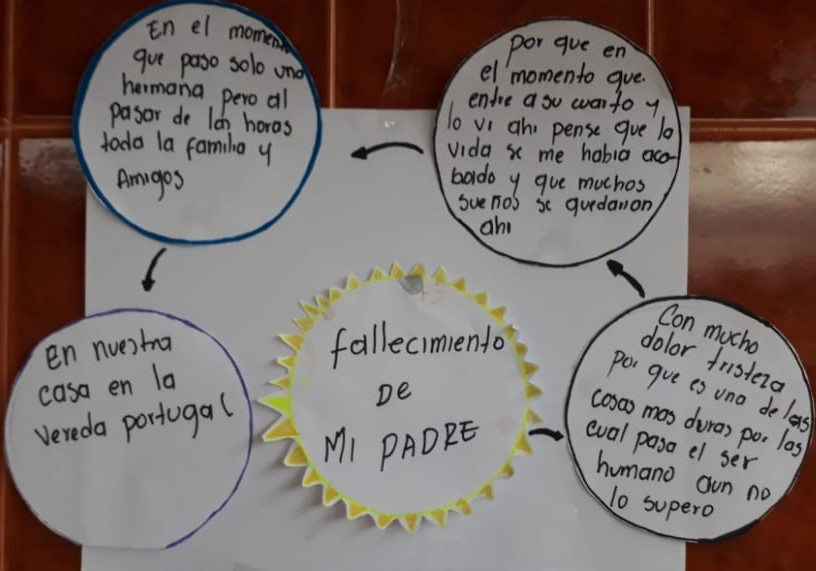 fallecimiento
DE
MI PADRE
Con mucho
dolor tristeza
por que es una de las
cosas mas duras por las
cual pasa el ser
humano aun no
lo supero
por que en
el momento que
entre a su cuarto y
lo vi ahi pense que la
vida se me habia aca-
bado y que muchos
sueños se quedaron
ahi
En el momento
que paso solo una
hermana pero al
pasar de las horas
toda la familia y
Amigos
en nuestra
casa en la
vereda portugal